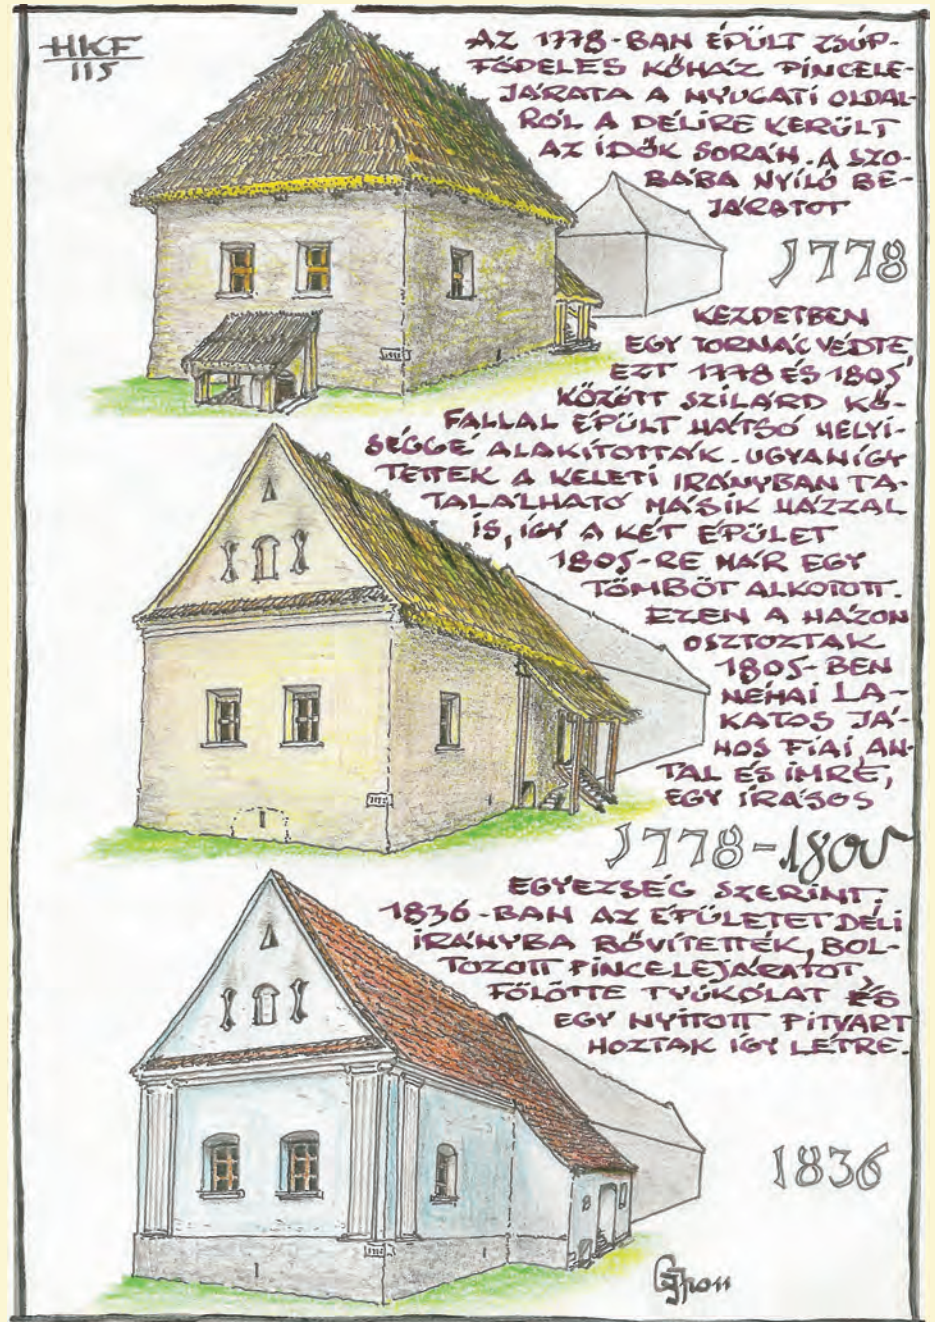 HKF
115
AZ 1778-BAN ÉPÜLT ZSÚP-
FÖDELES KŐHÁZ PINCELE-
JÁRATA A NYUGATI OLDAL-
RÓL A DÉLIRE KERÜLT
AZ IDŐK SORÁN. A SZO-
BÁBA NYÍLÓ BE-
JÁRATOT
1778
KEZDETBEN
EGY TORNÁC VÉDTE,
EZT 1778 ÉS 1805
KÖZÖTT SZILÁRD KŐ-
FALLAL ÉPÜLT HÁTSÓ HELYI-
SÉGGÉ ALAKÍTOTTÁK. UGYANÍGY
TETTEK A KELETI IRÁNYBAN TA-
TALÁLHATÓ MÁSIK HÁZZAL
IS, ÍGY A KÉT ÉPÜLET
1805-RE MÁR EGY
TÖMBÖT ALKOTOTT.
EZEN A HÁZON
OSZTOZTAK
1805-BEN
NÉHAI LA-
KATOS JÁ-
NOS FIAI, AN-
TAL ÉS IMRE,
EGY ÍRÁSOS
1778-1805
EGYEZSÉG SZERINT.
1836-BAN AZ ÉPÜLETET DÉLI
IRÁNYBA BŐVÍTETTÉK, BOL-
TOZOTT PINCELEJÁRATOT,
FÖLÖTTE TYÚKÓLAT ÉS
EGY NYITOTT PITVART
HOZTAK ÍGY LÉTRE.
1836